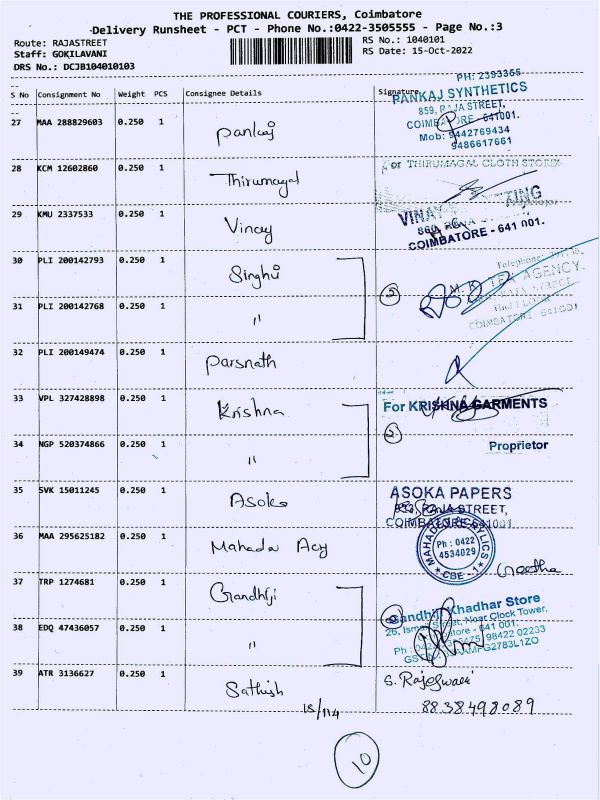 THE PROFESSIONAL COURIERS, Coimbatore
Delivery Runsheet - PCT - Phone No.:0422-3505555 - Page No.:3
Route: RAJASTREET
RS No.: 1040101
Staff: GOKILAVANI
RS Date: 15-Oct-2022
DRS No.: DCJB104010103
S No Consignment No Weight PCS Consignee Details Signature
PH: 2393355
PANKAJ SYNTHETICS
859, RAJA STREET,
COIMBATORE - 641001.
Mob: 9442769434
9486617661
27 MAA 288829603 0.250 1 Pankaj
28 KCM 12602860 0.250 1 Thirumagal
For THIRUMAGAL CLOTH STORES
29 KMU 2337533 0.250 1 Vinay
VINAY
COIMBATORE - 641 001.
30 PLI 200142793 0.250 1 Singhvi
2
TEA AGENCY.
COIMBATORE 641001
31 PLI 200142768 0.250 1 "
32 PLI 200149474 0.250 1 Parsnath
33 VPL 327428898 0.250 1 Krishna
For KRISHNA GARMENTS
2
Proprietor
34 NGP 520374866 0.250 1 "
35 SVK 15011245 0.250 1 Asoka
ASOKA PAPERS
RAJA STREET,
COIMBATORE 641001.
36 MAA 295625182 0.250 1 Mahadev Acy
Ph : 0422
4534029
CBE - 1
Geetha
37 TRP 1274681 0.250 1 Gandhiji
Gandhiji Khadhar Store
Street, Near Clock Tower,
641 001.
98422 02233
38 EDQ 47436057 0.250 1 "
39 ATR 3136627 0.250 1 Sathish
S. Rajeswari
8838498089
15/114
10